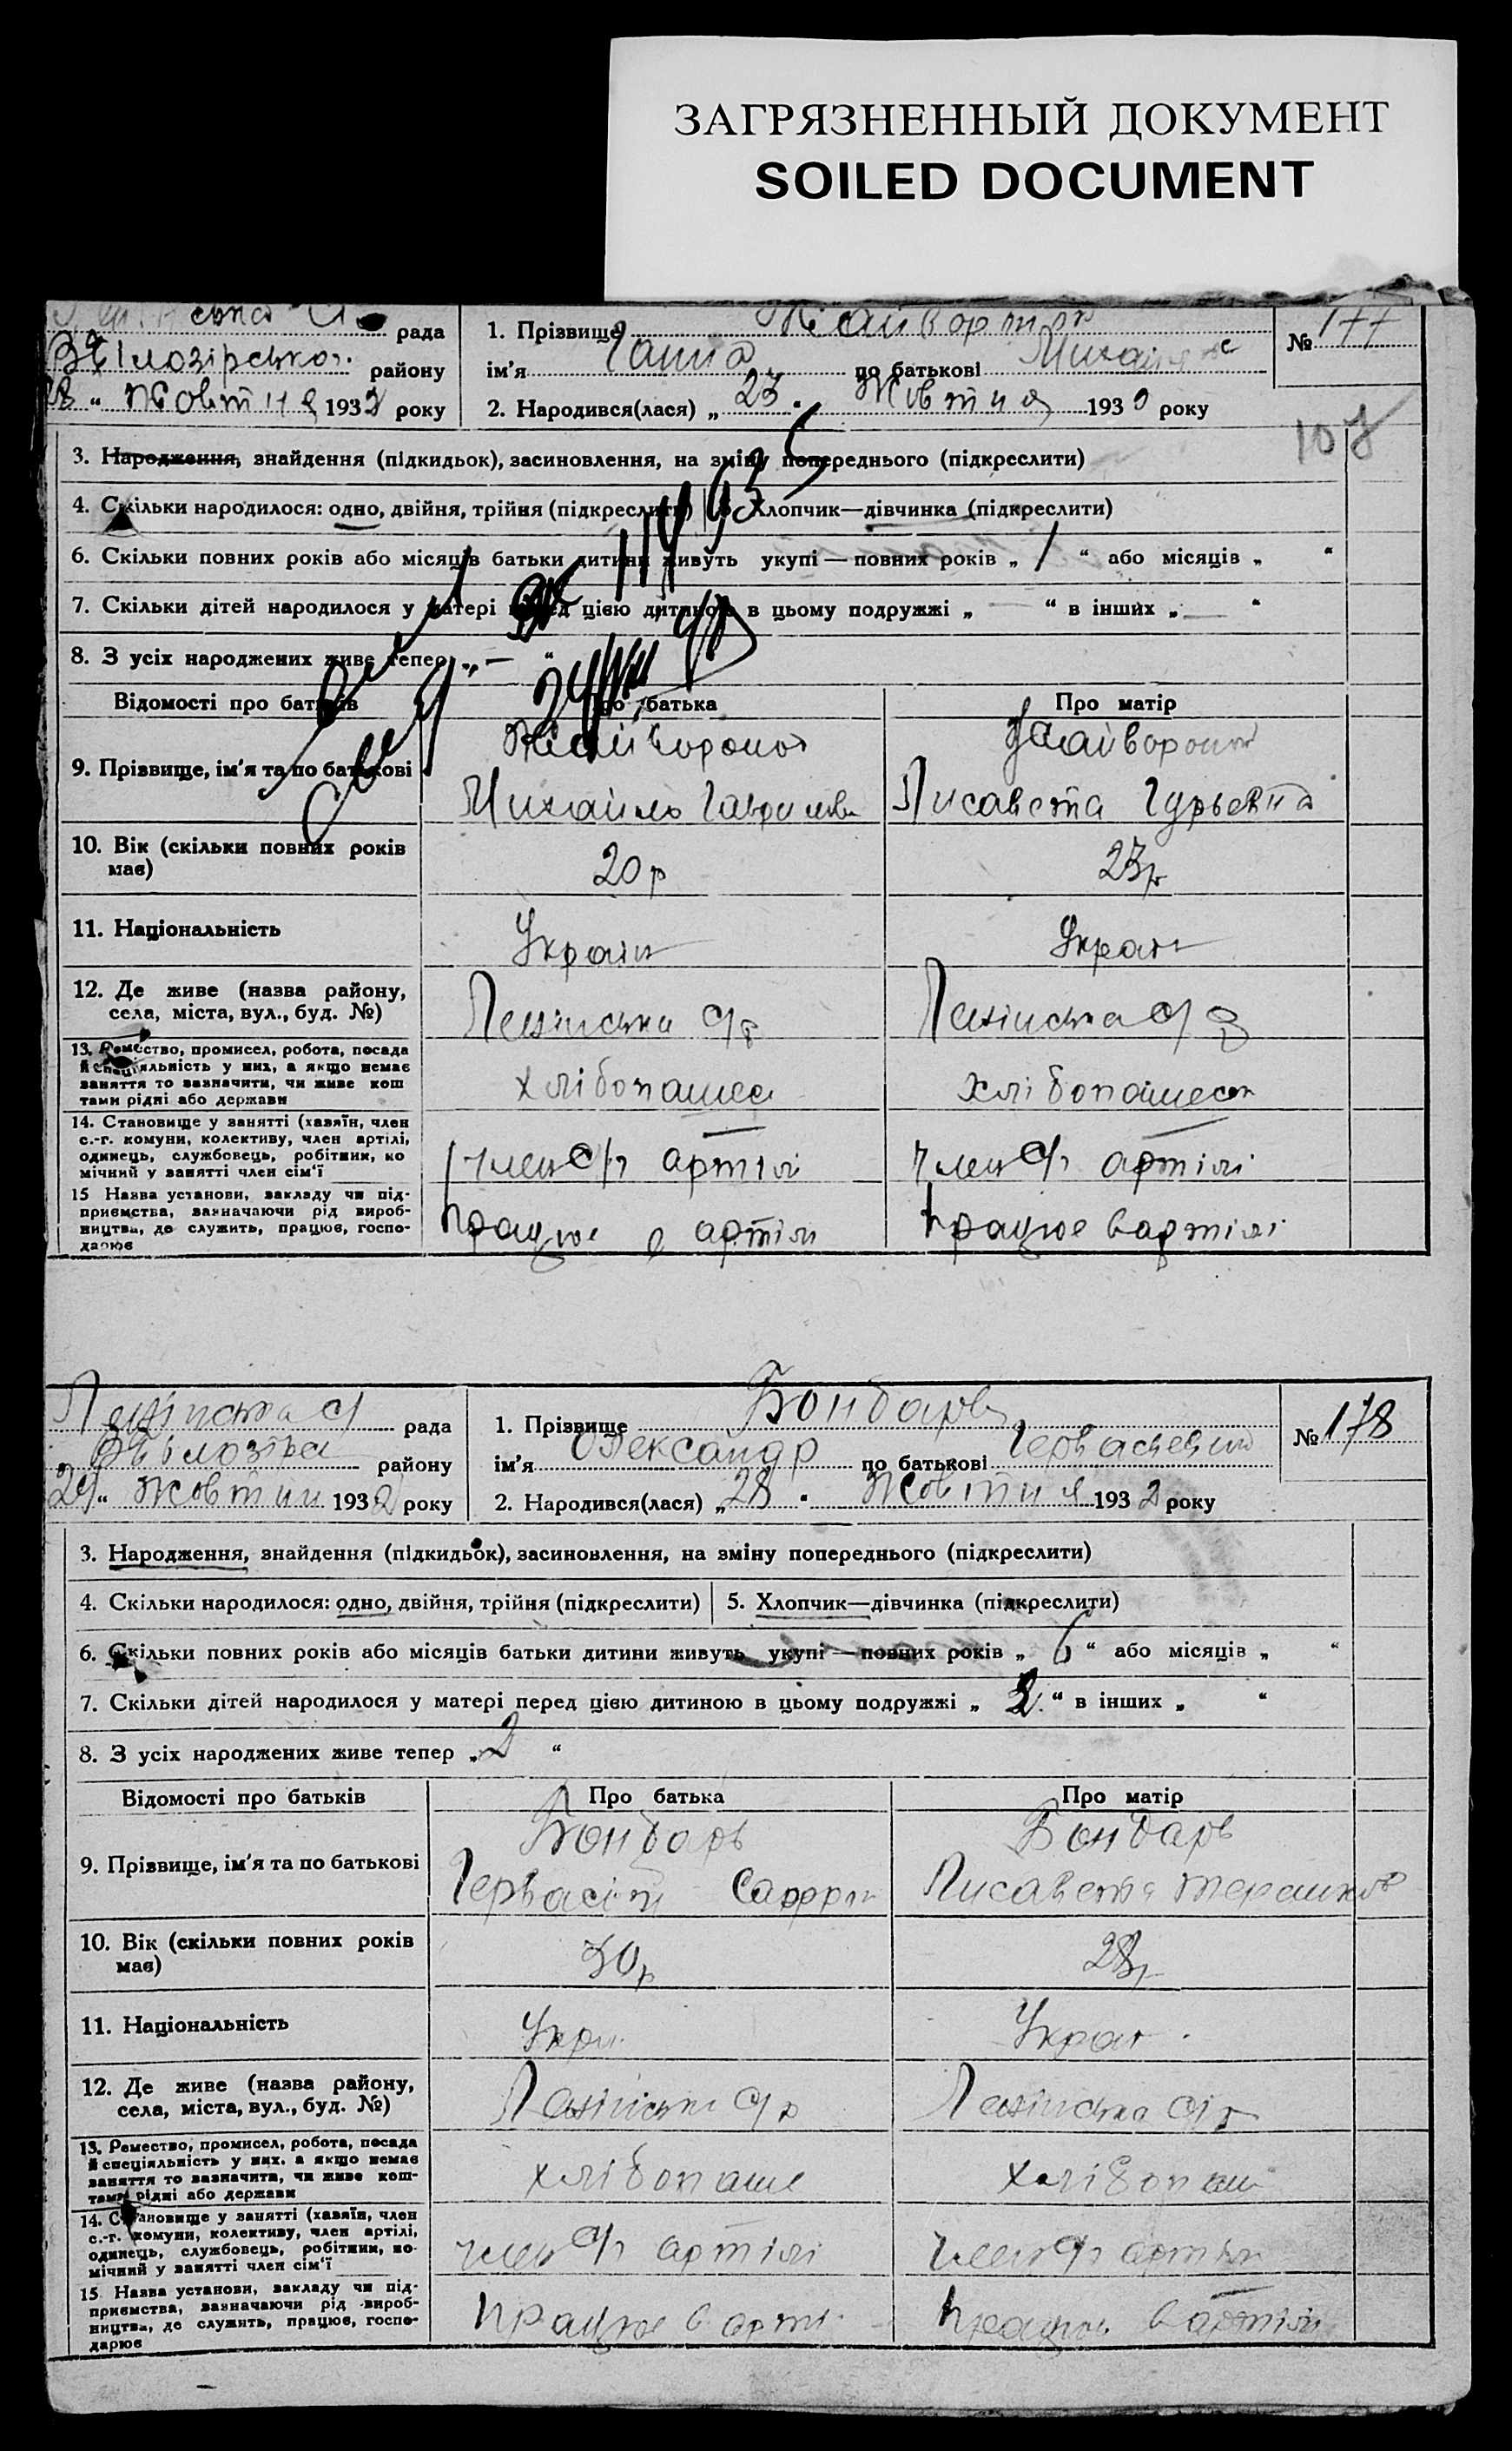 ЗАГРЯЗНЕННЫЙ ДОКУМЕНТ
SOILED DOCUMENT
рада
району
„ Жовтня 1932 року
1. Прізвище
ім'я Ганна по батькові
2. Народився(лася) „ 23 Жовтня 193 року
№ 177
107
3. Народження, знайдення (підкидьок), засиновлення, на зміну попереднього (підкреслити)
4. Скільки народилося: одно, двійня, трійня (підкреслити) 5. Хлопчик—дівчинка (підкреслити)
6. Скільки повних років або місяців батьки дитини живуть укупі — повних років „ 1 “ або місяців „ “
7. Скільки дітей народилося у матері перед цією дитиною в цьому подружжі „ — “ в інших „ — “
8. З усіх народжених живе тепер „ — “
Відомості про батьків Про батька Про матір
9. Прізвище, ім'я та по батькові
Михайло Лисавета Гурьевна
10. Вік (скільки повних років має) 20 р 23 р
11. Національність Україн Україн
12. Де живе (назва району, села, міста, вул., буд. №)
Ленінська с/р Ленінська с/р
13. Ремество, промисел, робота, посада й спеціяльність у них, а якщо немає заняття то зазначити, чи живе коштами рідні або держави
14. Становище у занятті (хазяїн, член с.-г. комуни, колективу, член артілі, одинець, службовець, робітник, помічний у занятті член сім'ї
член с/г артілі член с/г артілі
15 Назва установи, закладу чи підприємства, зазначаючи рід виробництва, де служить, працює, господарює
працює в артіли працює в артілі
Ленінська с/ рада
району
29 „ Жовтня 1932 року
1. Прізвище Бондарь
ім'я Олександр по батькові
2. Народився(лася) „ 28 Жовтня 1932 року
№ 178
3. Народження, знайдення (підкидьок), засиновлення, на зміну попереднього (підкреслити)
4. Скільки народилося: одно, двійня, трійня (підкреслити) 5. Хлопчик—дівчинка (підкреслити)
6. Скільки повних років або місяців батьки дитини живуть укупі — повних років „ 6 “ або місяців „ “
7. Скільки дітей народилося у матері перед цією дитиною в цьому подружжі „ 2 “ в інших „ “
8. З усіх народжених живе тепер „ 2 “
Відомості про батьків Про батька Про матір
9. Прізвище, ім'я та по батькові
Бондарь Бондарь
Гервасій Лисавета
10. Вік (скільки повних років має) 30 р 28 р
11. Національність
12. Де живе (назва району, села, міста, вул., буд. №)
Ленінська с/р Ленінська с/р
13. Ремество, промисел, робота, посада й спеціяльність у них, а якщо немає заняття то зазначити, чи живе коштами рідні або держави
хлібопаше
14. Становище у занятті (хазяїн, член с.-г. комуни, колективу, член артілі, одинець, службовець, робітник, помічний у занятті член сім'ї
член с/г артілі член с/г артіли
15 Назва установи, закладу чи підприємства, зазначаючи рід виробництва, де служить, працює, господарює
працює в арті працює в артіли